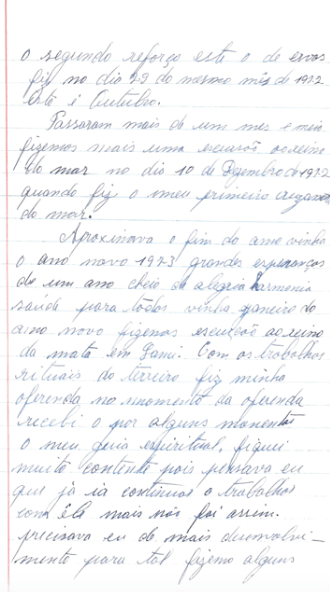 o segundo reforço este o de ervas
fiz no dia 29 do mesmo mês de 1972
este é Outubro.
Passaram mais de um mes e meio
fizemos mais uma escursõ ao reino
do mar no dia 10 de Dezembro de 1972
quando fiz o meu primeiro
do mar.
Aproximava o fim do ano vinha
o ano novo 1973 grandes esperanças
de um ano cheio de alegria harmonia
saúde para todos vinha janeiro do
ano novo fizemos escursõ ao reino
da mata em Lami. Com os trabalhos
rituais do terreiro fiz minha
oferenda no momento da oferenda
recebi o por alguns momentos
o meu guia espiritual, fiquei
muito contente pois pensava eu
que já ia continuar o trabalhos
com êle mais não foi assim.
precisava eu de mais desenvolvi-
mento para tal fazemo alguns